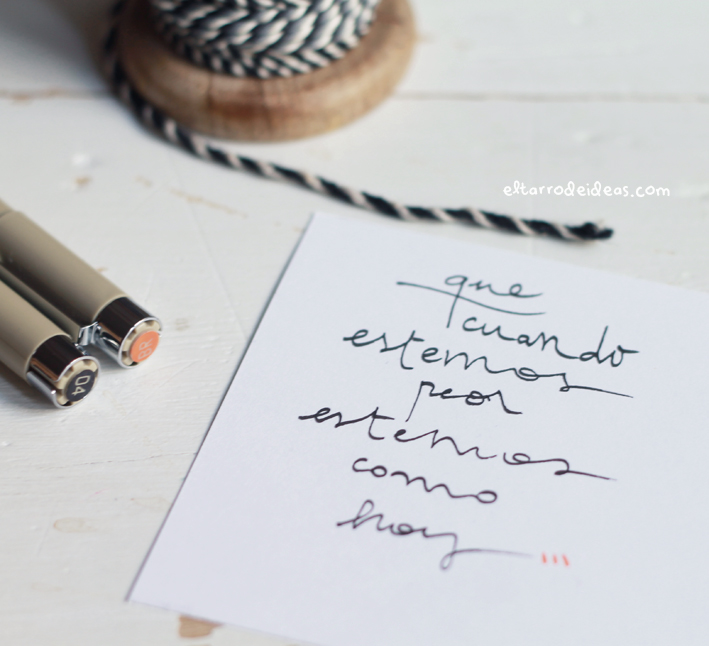 eltarrodeideas.com
que
cuando
estemos
peor
estemos
como
hoy
04
BR